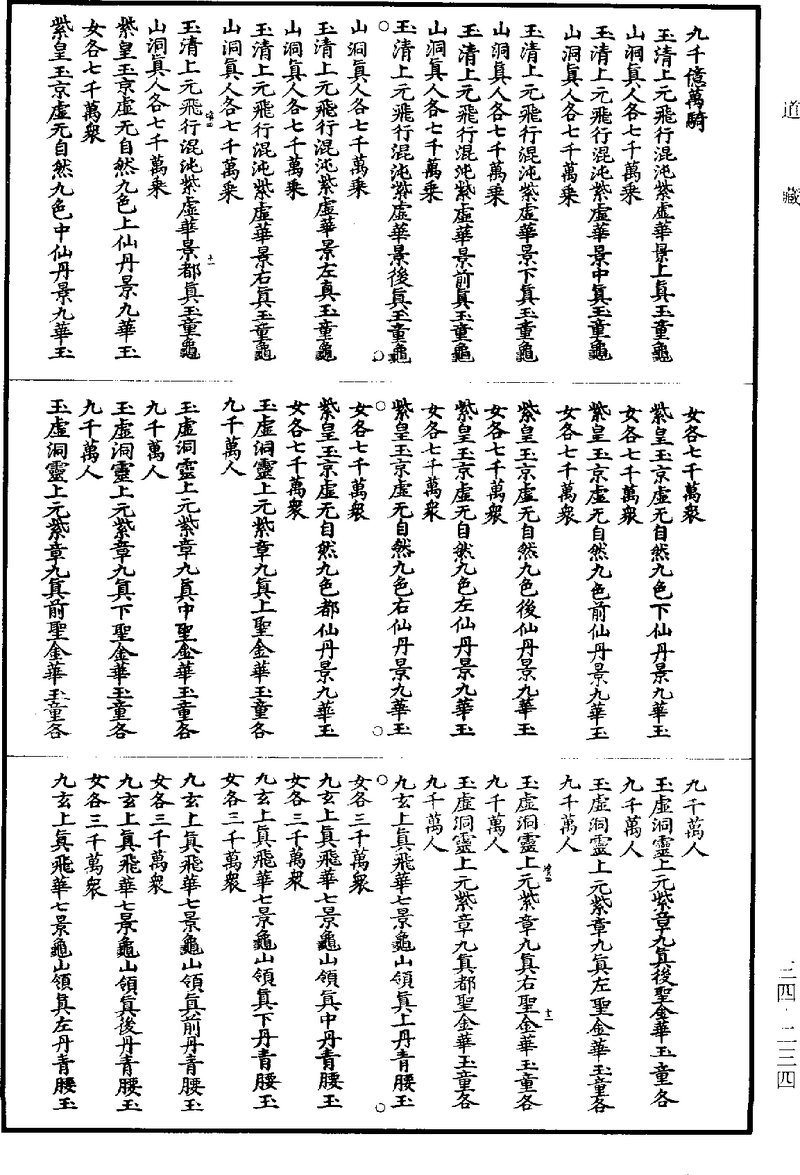 道藏
九千億萬騎
玉清上元飛行混沌紫虛華景上眞玉童龜
山洞眞人各七千萬乘
玉清上元飛行混沌紫虛華景中眞玉童龜
山洞眞人各七千萬乘
玉清上元飛行混沌紫虛華景下眞玉童龜
山洞眞人各七千萬乘
玉清上元飛行混沌紫虛華景前眞玉童龜
山洞眞人各七千萬乘
玉清上元飛行混沌紫虛華景後眞玉童龜
山洞眞人各七千萬乘
玉清上元飛行混沌紫虛華景左眞玉童龜
山洞眞人各七千萬乘
玉清上元飛行混沌紫虛華景右眞玉童龜
山洞眞人各七千萬乘
十一
玉清上元飛行混沌紫虛華景都眞玉童龜
山洞眞人各七千萬乘
紫皇玉京虛无自然九色上仙丹景九華玉
女各七千萬衆
紫皇玉京虛无自然九色中仙丹景九華玉
女各七千萬衆
紫皇玉京虛无自然九色下仙丹景九華玉
女各七千萬衆
紫皇玉京虛无自然九色前仙丹景九華玉
女各七千萬衆
紫皇玉京虛无自然九色後仙丹景九華玉
女各七千萬衆
紫皇玉京虛无自然九色左仙丹景九華玉
女各七千萬衆
紫皇玉京虛无自然九色右仙丹景九華玉
女各七千萬衆
紫皇玉京虛无自然九色都仙丹景九華玉
女各七千萬衆
玉虛洞靈上元紫章九眞上聖金華玉童各
九千萬人
玉虛洞靈上元紫章九眞中聖金華玉童各
九千萬人
玉虛洞靈上元紫章九眞下聖金華玉童各
九千萬人
玉虛洞靈上元紫章九眞前聖金華玉童各
九千萬人
玉虛洞靈上元紫章九眞後聖金華玉童各
九千萬人
玉虛洞靈上元紫章九眞左聖金華玉童各
九千萬人
十二
玉虛洞靈上元紫章九眞右聖金華玉童各
九千萬人
玉虛洞靈上元紫章九眞都聖金華玉童各
九千萬人
九玄上眞飛華七景龜山領眞上丹青腰玉
女各三千萬衆
九玄上眞飛華七景龜山領眞中丹青腰玉
女各三千萬衆
九玄上眞飛華七景龜山領眞下丹青腰玉
女各三千萬衆
九玄上眞飛華七景龜山領眞前丹青腰玉
女各三千萬衆
九玄上眞飛華七景龜山領眞後丹青腰玉
女各三千萬衆
九玄上眞飛華七景龜山領眞左丹青腰玉
三四·二三四